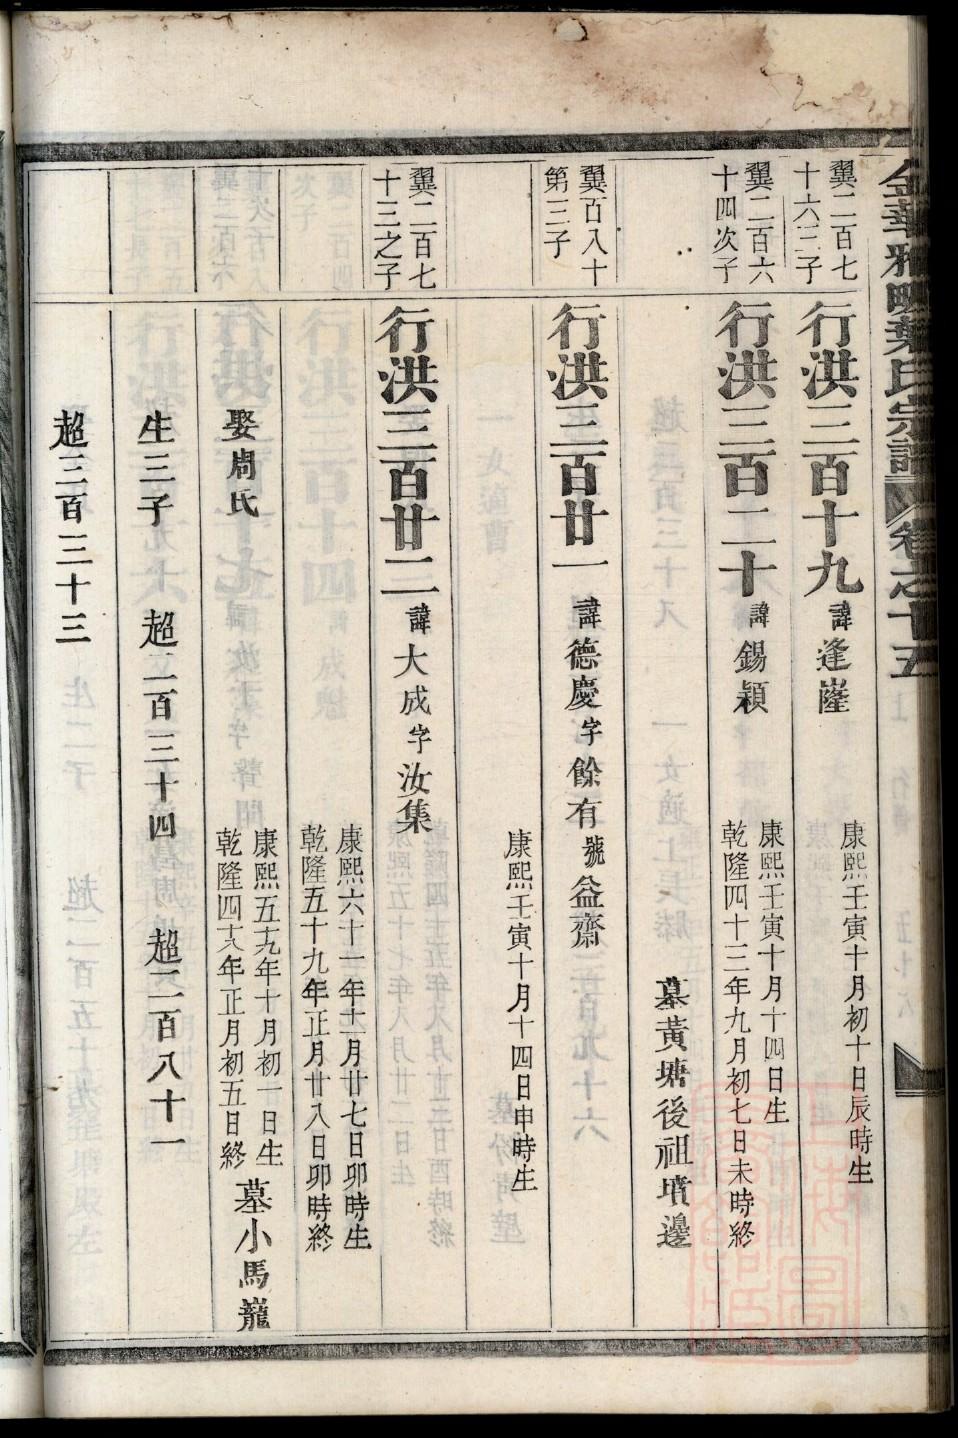 金華雅畈葉氏宗譜 卷之十五
翼二百七十六三子
行洪三百十九 諱逢㠕
康熙壬寅十月初十日辰時生
翼二百六十四次子
行洪三百二十 諱錫穎
康熙壬寅十月十四日生
乾隆四十三年九月初七日未時終
墓黃塘後祖墳邊
翼百八十第三子
行洪三百廿一 諱德慶字餘有號益齋
康熙壬寅十月十四日申時生
翼二百七十三之子
行洪三百廿二 諱大成字汝集
康熙六十一年十二月廿七日卯時生
乾隆五十九年正月廿八日卯時終
娶周氏
康熙五十九年十月初一日生
乾隆四十八年正月初五日終
墓小馬巃
生三子 超二百三十四 超二百八十一
超三百三十三